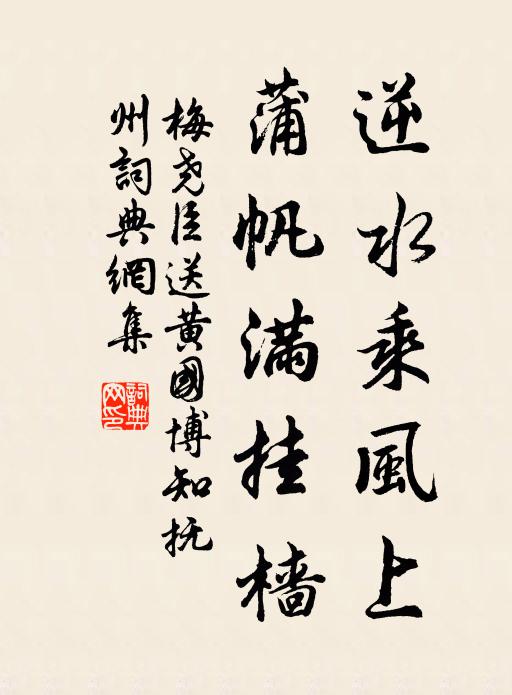 逆水乘風上
蒲帆滿挂檣
梅尧臣送黄國博知抚
州詞典網集
詞典网印